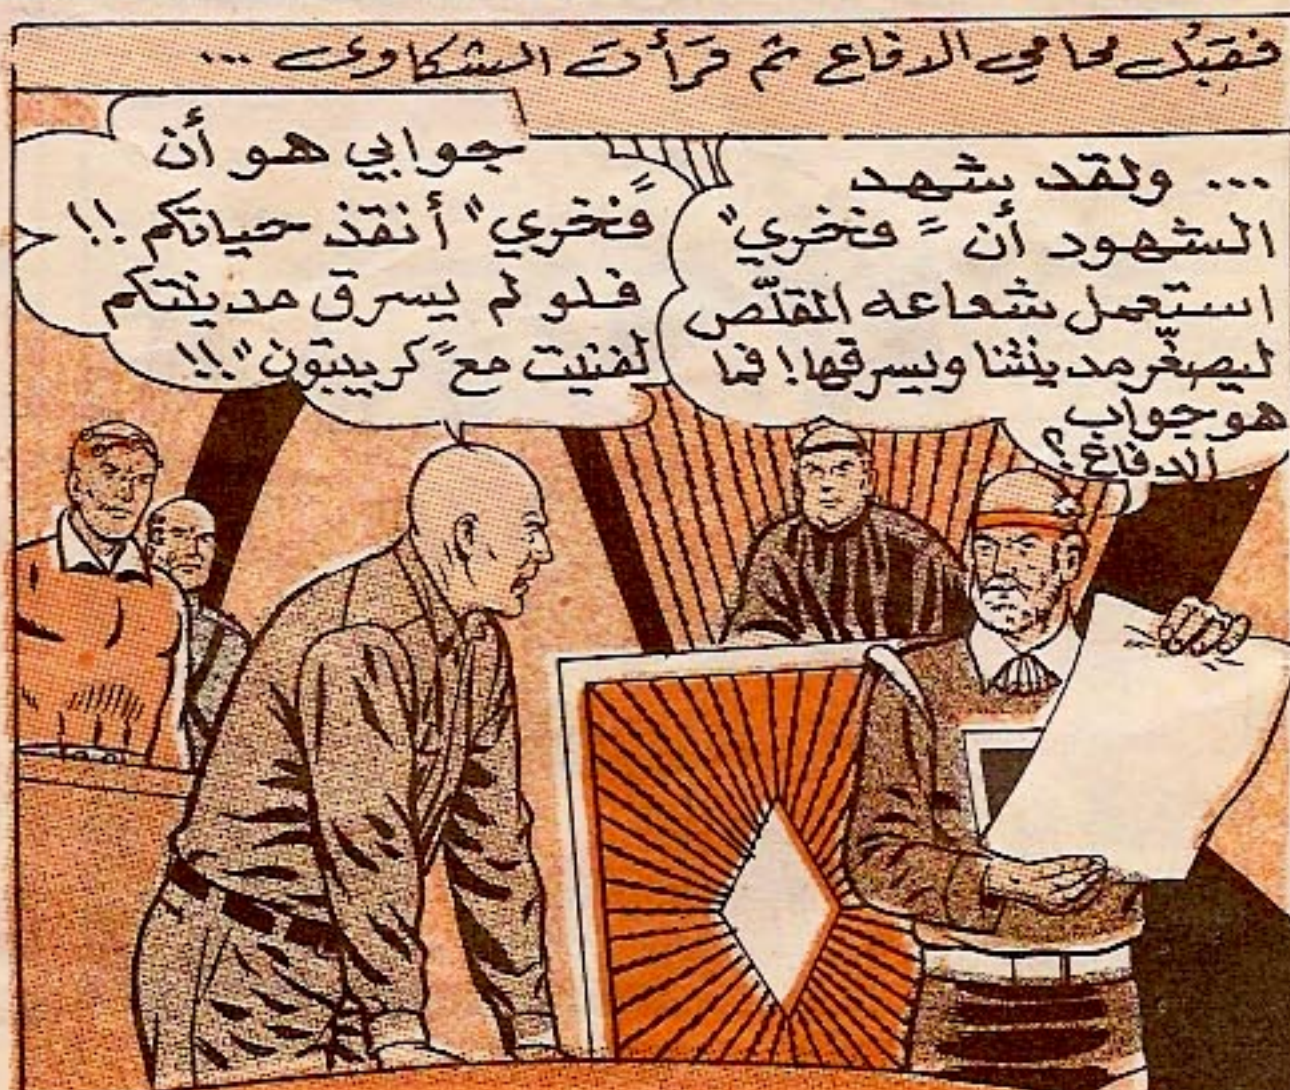 فقَبِل محامي الدفاع ثم قرأت الشكاوى ...
... ولقد شهد
الشهود أن "فخري"
استعمل شعاعه المقلّص
ليصغّر مدينتنا ويسرقها! فما
هو جواب
الدفاع؟
جوابي هو أن
"فخري" أنقذ حياتكم!!
فلو لم يسرق مدينتكم
لفنيت مع "كريبتون"!!